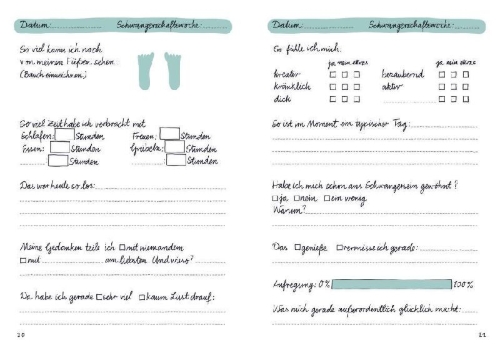 Datum: Schwangerschaftswoche:
So viel kann ich noch
von meinen Füßen sehen
(Bauch einzeichnen)
So viel Zeit habe ich verbracht mit
Schlafen: Stunden Freuen: Stunden
Essen: Stunden Grübeln: Stunden
: Stunden : Stunden
Das war heute so los:
Meine Gedanken teile ich mit niemandem
mit am liebsten. Und wieso?
Da habe ich gerade sehr viel kaum Lust drauf:
20
Datum: Schwangerschaftswoche:
So fühle ich mich.
ja nein etwas ja nein etwas
kreativ
kränklich aktiv
dick
So ist im Moment ein typischer Tag:
Habe ich mich schon ans Schwangersein gewöhnt?
ja nein ein wenig
Warum?
Das genieße vermisse ich gerade:
Aufregung: 0% 100%
Was mich gerade außerordentlich glücklich macht:
21